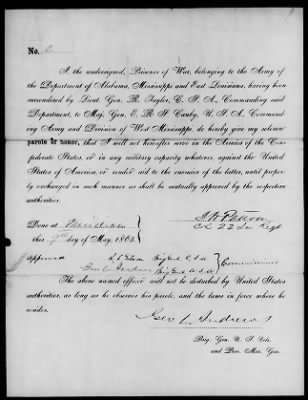 No.
I, the undersigned, Prisoner of War, belonging to the Army of
the Department of Alabama, Mississippi and East Louisiana, having been
surrendered by Lieut. Gen. R. Taylor, C. S. A., Commanding said
Department, to Maj. Gen. E. R. S. Canby, U. S. A., Command-
ing Army and Division of West Mississippi, do hereby give my solemn
parole of honor, that I will not hereafter serve in the Armies of the Con-
federate States, or in any military capacity whatever, against the United
States of America, or render aid to the enemies of the latter, until proper-
ly exchanged in such manner as shall be mutually approved by the respective
authorities.
Done at Meridian
this day of May, 1865.
22
Approved Brig Genl C S A
Geo L Andrews Brig Genl U S A
Commissioners
The above named officer will not be disturbed by United States
authorities, as long as he observes his parole, and the laws in force where he
resides.
Geo L Andrews
Brig. Gen. U. S. Vols.
and Pro. Mar. Gen.